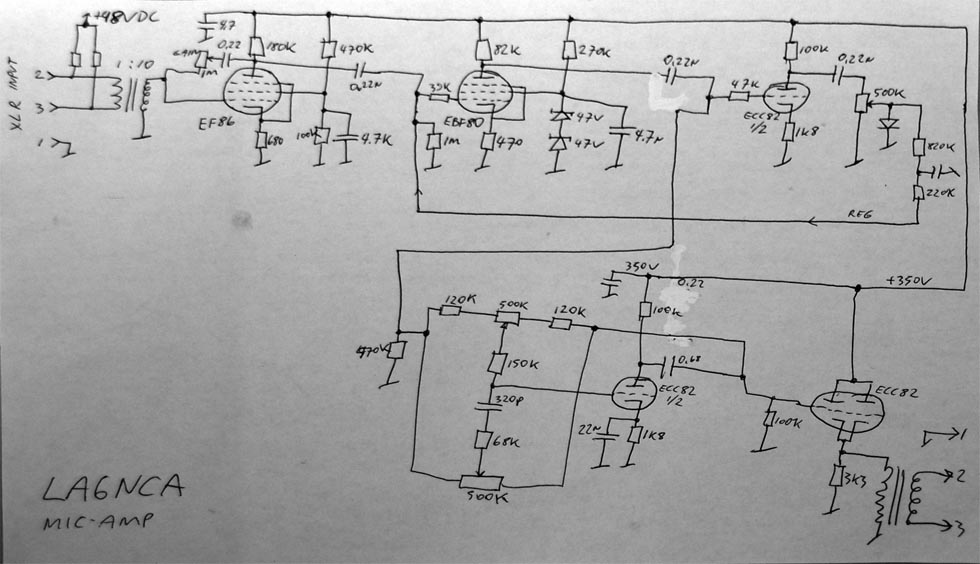 +48VDC
8.7
0.22
180K
470K
82K
270K
100K
0.22N
0.22N
500K
1M
1:10
XLR INPUT
2
3
1
EF86
680
100K
4.7K
0.22N
39K
1M
EBF80
470
47V
47V
4.7N
47K
ECC82
1/2
1K8
820K
220K
REG
350V
0.22
+350V
120K
500K
120K
100K
470K
150K
320P
68K
500K
0.68
ECC82
1/2
22N
1K8
100K
ECC82
3K3
1
2
3
LA6NCA
MIC-AMP